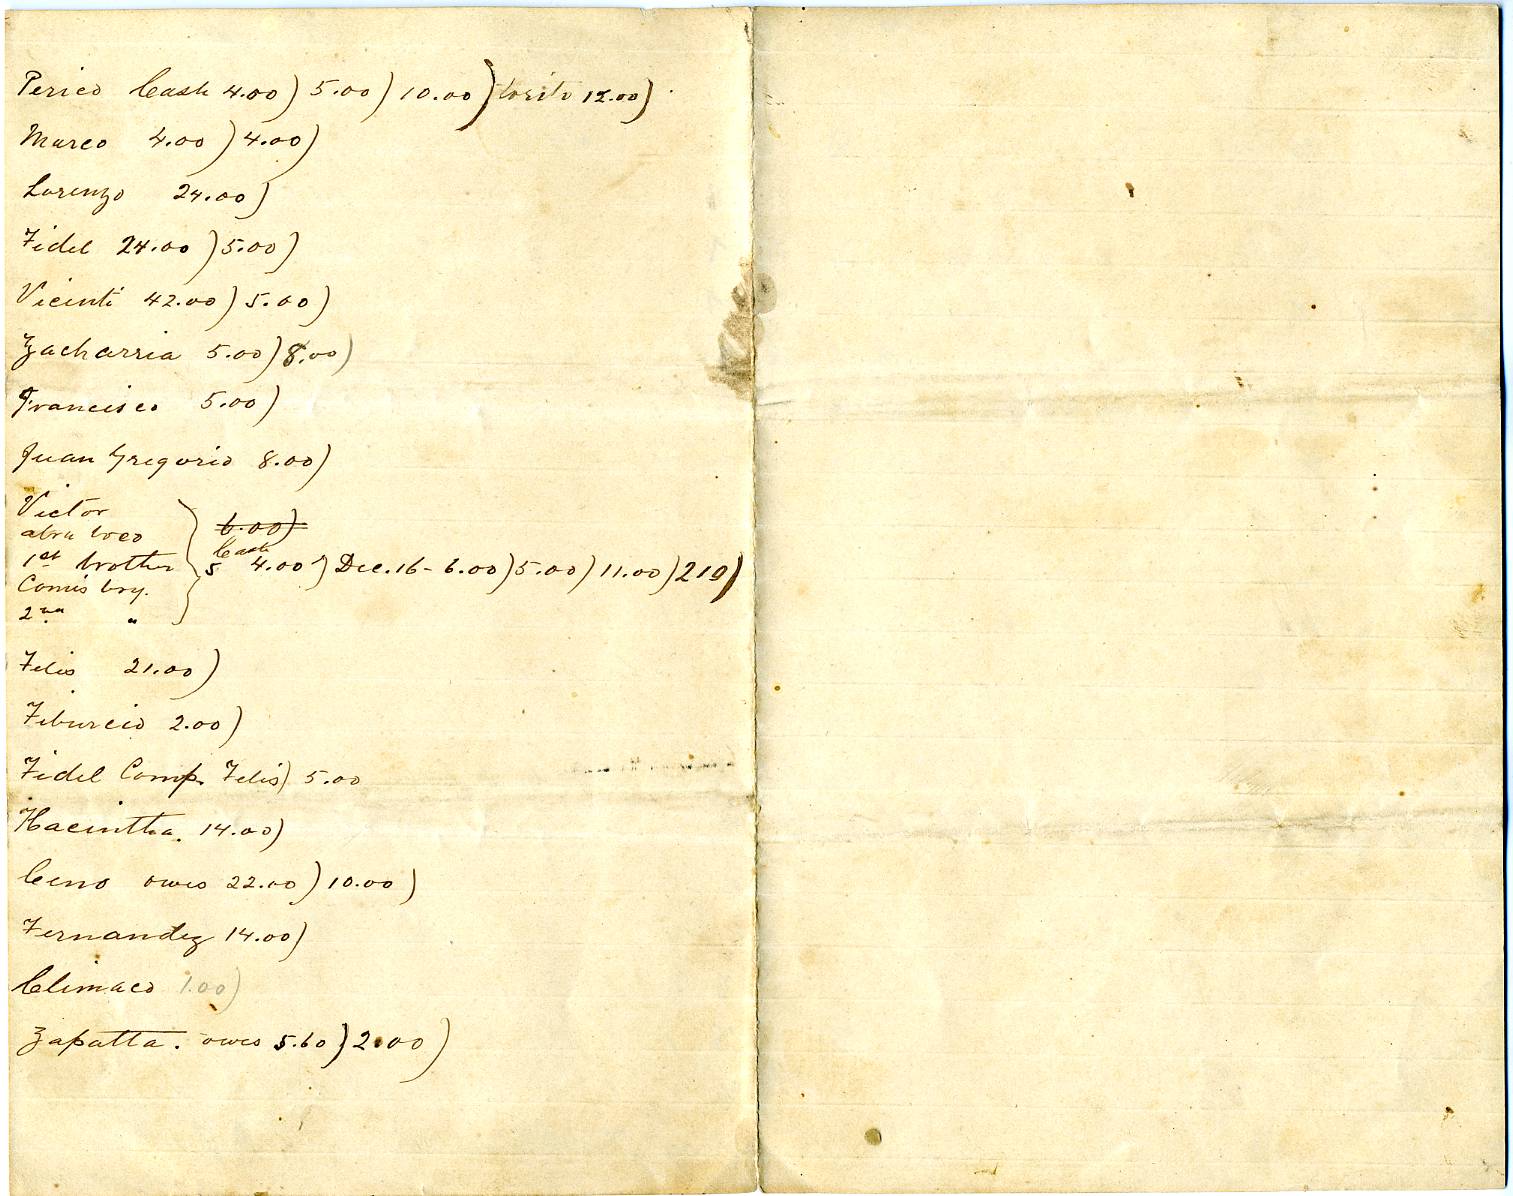 Perico Cash 4.00) 5.00) 10.00) torito 12.00)
Marco 4.00) 4.00)
Lorenzo 24.00)
Fidel 24.00) 5.00)
Vicinti 42.00) 5.00)
Zacharria 5.00) 8.00)
Francisco 5.00)
Juan Gregorio 8.00)
Victor
6.00)
1st brother
Cash
5 4.00) Dec. 16 - 6.00) 5.00) 11.00) 210)
2nd "
Felis 21.00)
Tiburcio 2.00)
Fidel Comp. Felis) 5.00
Hacintha. 14.00)
Ceno owes 22.00) 10.00)
Fernandez 14.00)
Climaco 1.00)
Zapatta. owes 5.60) 2.00)